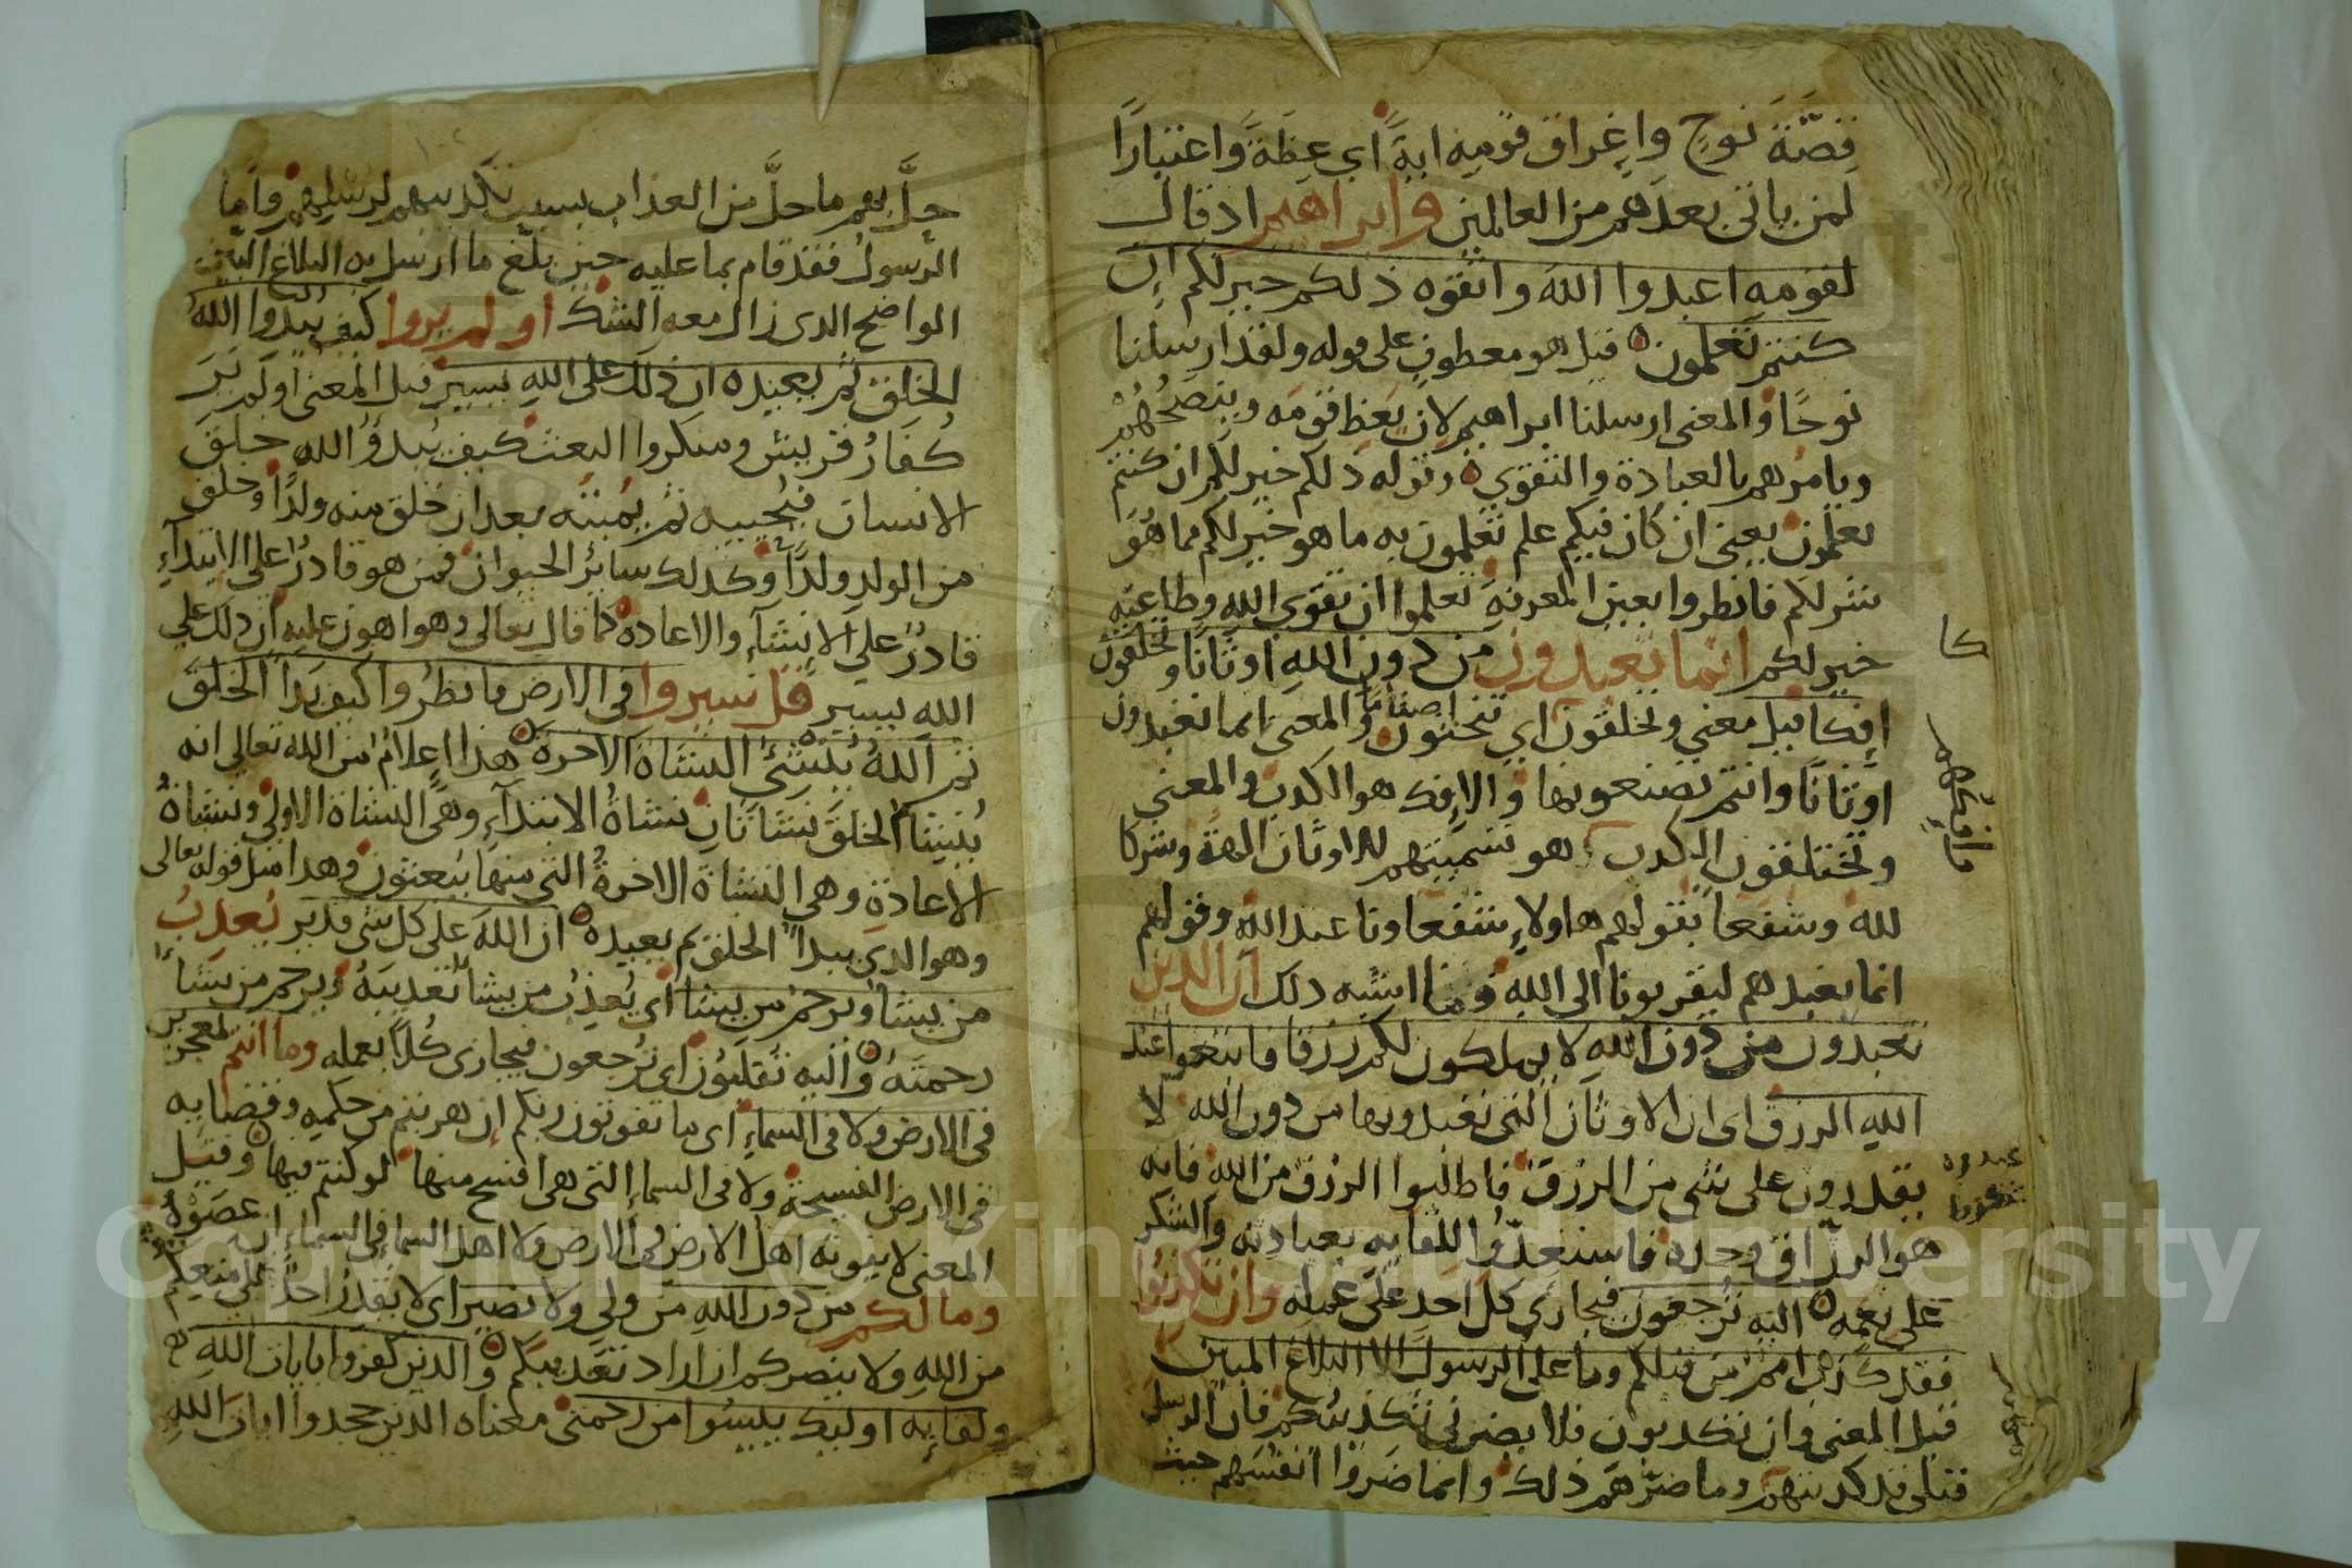 قِصَّةَ نوحٍ وإغراق قومِه ايةً اي عِظَةً واعتبارًا
لمن ياتى بعدَهم من العالمين وابراهيم اذ قال
لقومِه اعبدوا اللهَ واتقوه ذلكم خير لكم ان
كنتم تعلمون قيل هو معطوف على قوله ولقد ارسلنا
نوحًا والمعنى ارسلنا ابراهيم لان يَعِظ قومَه وينصحُهُمْ
ويامرهم بالعبادة والتقوي وقوله ذلكم خير لكم ان كنتم
تعلمون يعنى ان كان فيكم علم تعلمون به ما هو خير لكم مما هُوَ
شر لكم فانظروا بعين المعرفة تعلموا ان تقوى الله وطاعته
خير لكم انما تعبدون من دون اللهِ اوثانًا وتخلقون
إفكا قيل معني وتخلقون اي تنحتون اصنامًا والمعنى انما تعبدون
اوثانًا وانتم تصنعونها والإفك هو الكذب والمعني
وتختلقون الكذب هو تسميتهم للاوثان الهة وشركا
لله وشفعا بقولهم هاولاءِ شفعاونا عند الله وقولهم
انما نعبدهم ليقربونا الى اللهِ وما اشبه ذلك ان الذين
تعبدون من دون اللهِ لا يملكون لكم رزقا فابتغوا عند
اللهِ الرزق اى ان الاوثان التى تعبدونها من دون الله لا
يقدرون على شى من الرزق فاطلبوا الرزق من الله فانه
هو الرزّاق وحده فاستعدّوا للقايه بعبادته والشكر
على نعمه اليه ترجعون فيجازى كل احد على عمله وان تكذبوا
فقد كذب امم من قبلكم وما على الرسول الا البلاغ المبين
قيل المعنى وان تكذبون فلا يضرنى تكذيبكم فان الرسل
قبلى قد كذبتهم وما ضرّهم ذلك وانما ضَرّوا انفسَهم حيث
كا
حلَّ بهم ما حلَّ من العذاب بسبب تكذيبهم لرسلهم واما
الرسولُ فقد قام بما عليه حين بلّغ ما ارسل به البلاغ البين
الواضح الذى زال معه الشك او لم يروا كيف يُبدوا اللهُ
الخلق ثم يعيده ان ذلك على اللهِ يسير قيل المعنى اولَم يَرَ
كُفارُ قريش ومنكروا البعث كيف يُبدؤُ الله خلقَ
الانسان فيُحييه ثم يُميته بعد ان خلق منه ولدًا وخلق
من الولد ولدًا وكذلك سائرُ الحيوان فمن هو قادرٌ على الابتداءِ
قادرٌ على الانشاءِ والاعادة كما قال تعالى وهو اهون عليه ان ذلك على
الله يسير قل سيروا فى الارض فانظرُوا كيف بَدأ الخلقَ
ثم اللهُ يُنشئُ النشاة الاخرة هذا اعلامٌ من الله تعالى انه
يُنشئ الخلقَ نشاتان نشاةُ الابتداءِ وهى النشاة الاولى ونشاةُ
الاعادةِ وهى النشاة الاخرةُ التى منها يُبعثون وهذا مثل قوله تعالى
وهو الذى يبدأ الخلق ثم يعيده ان الله على كل شى قدير يُعذبُ
من يشا ويرحمُ من يشا اى يُعذبُ من يشا تعذيبَهُ ويرحم من يشاءُ
رحمتَهُ واليه تُقلبُون اى تُرجعون فيجازى كُلًا بعمله وما انتم بمعجزين
فى الارض ولا فى السماءِ اى ما تفوتون ربكم ان هربتم من حكمِه وقضايه
فى الارض الفسيحة ولا فى السماءِ التى هى افسح منها لو كنتم فيها وقيل
المعنى لا يفوته اهل الارض فى الارض ولا اهل السما فى السماء ان عصَوْهُ
وما لكم من دون اللهِ من ولى ولا نصير اى لا يقدر احدٌ على منعكم
من اللهِ ولا ينصركم ان اراد تعذيبكم والذين كفروا بايات اللهِ
ولقايه اوليك ييسُوا من رحمتى معناه الذين جحدوا ايات اللهِ